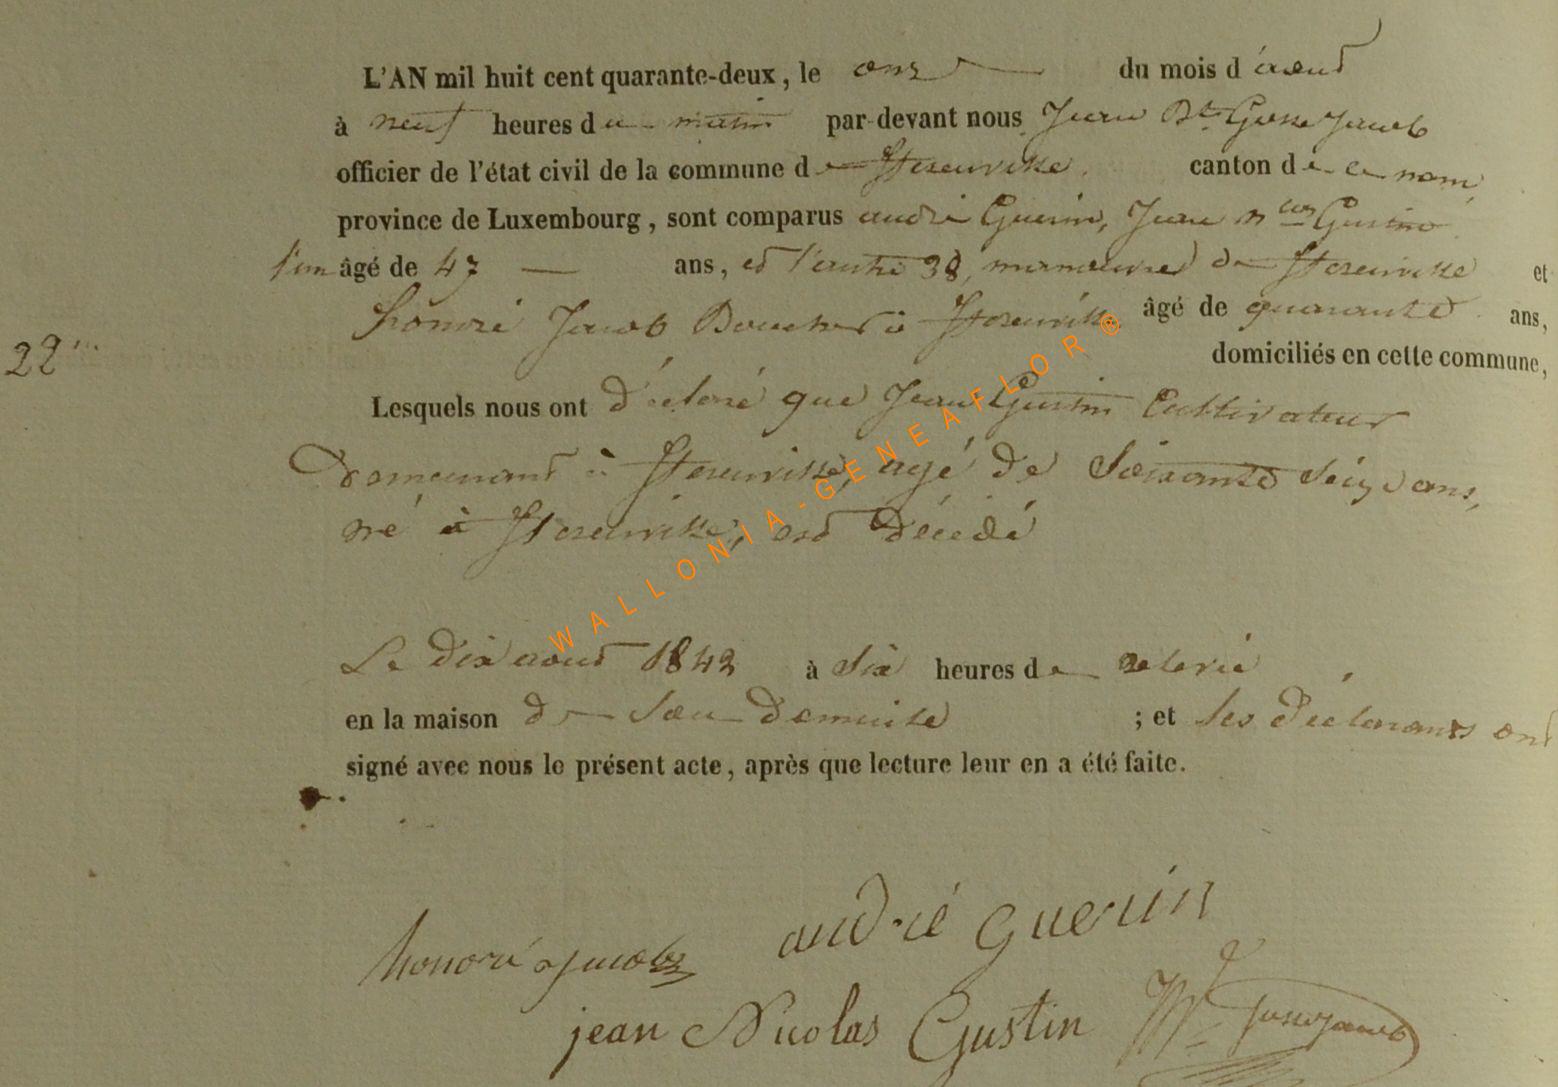 L'AN mil huit cent quarante-deux, le onze du mois d'aout
à neuf heures du matin par-devant nous Jean Bte Gosse Jacob
officier de l'état civil de la commune de canton de ce nom
province de Luxembourg, sont comparus andré Guerin, Jean Nlas Gustin
l'un âgé de 47 ans, et l'autre 38, manoeuvres de et
honoré Jacob à âgé de quarante ans,
22me
domiciliés en cette commune,
Lesquels nous ont déclaré que Jean Gustin Cultivateur
Demeurant à agé de Soixante Seize ans,
né à est décédé
Le dix aout 1842 à Six heures de relevée
en la maison de Son Domicile ; et les déclarants ont
signé avec nous le présent acte, après que lecture leur en a été faite.
honoré jacob andré guerin
jean Nicolas Gustin
WALLONIA-GENEAFLOR®